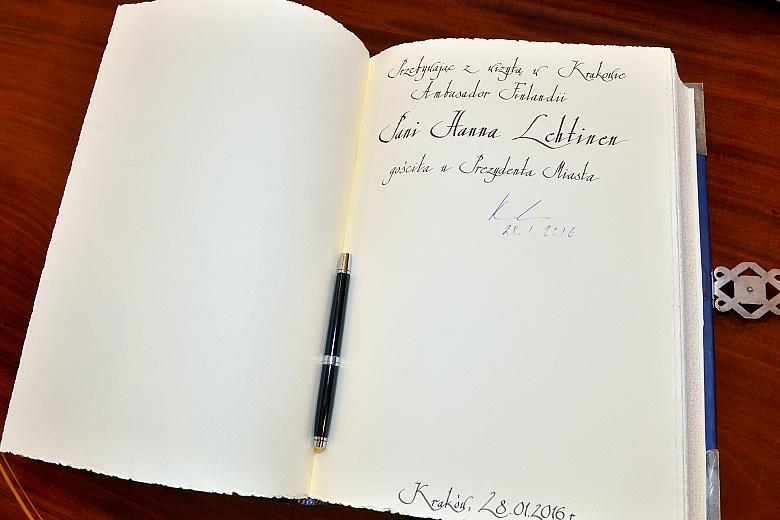 Przebywając z wizytą w Krakowie
Ambasador Finlandii
Pani Hanna Lehtinen
gościła u Prezydenta Miasta
28.1.2016
Kraków, 28.01.2016 r